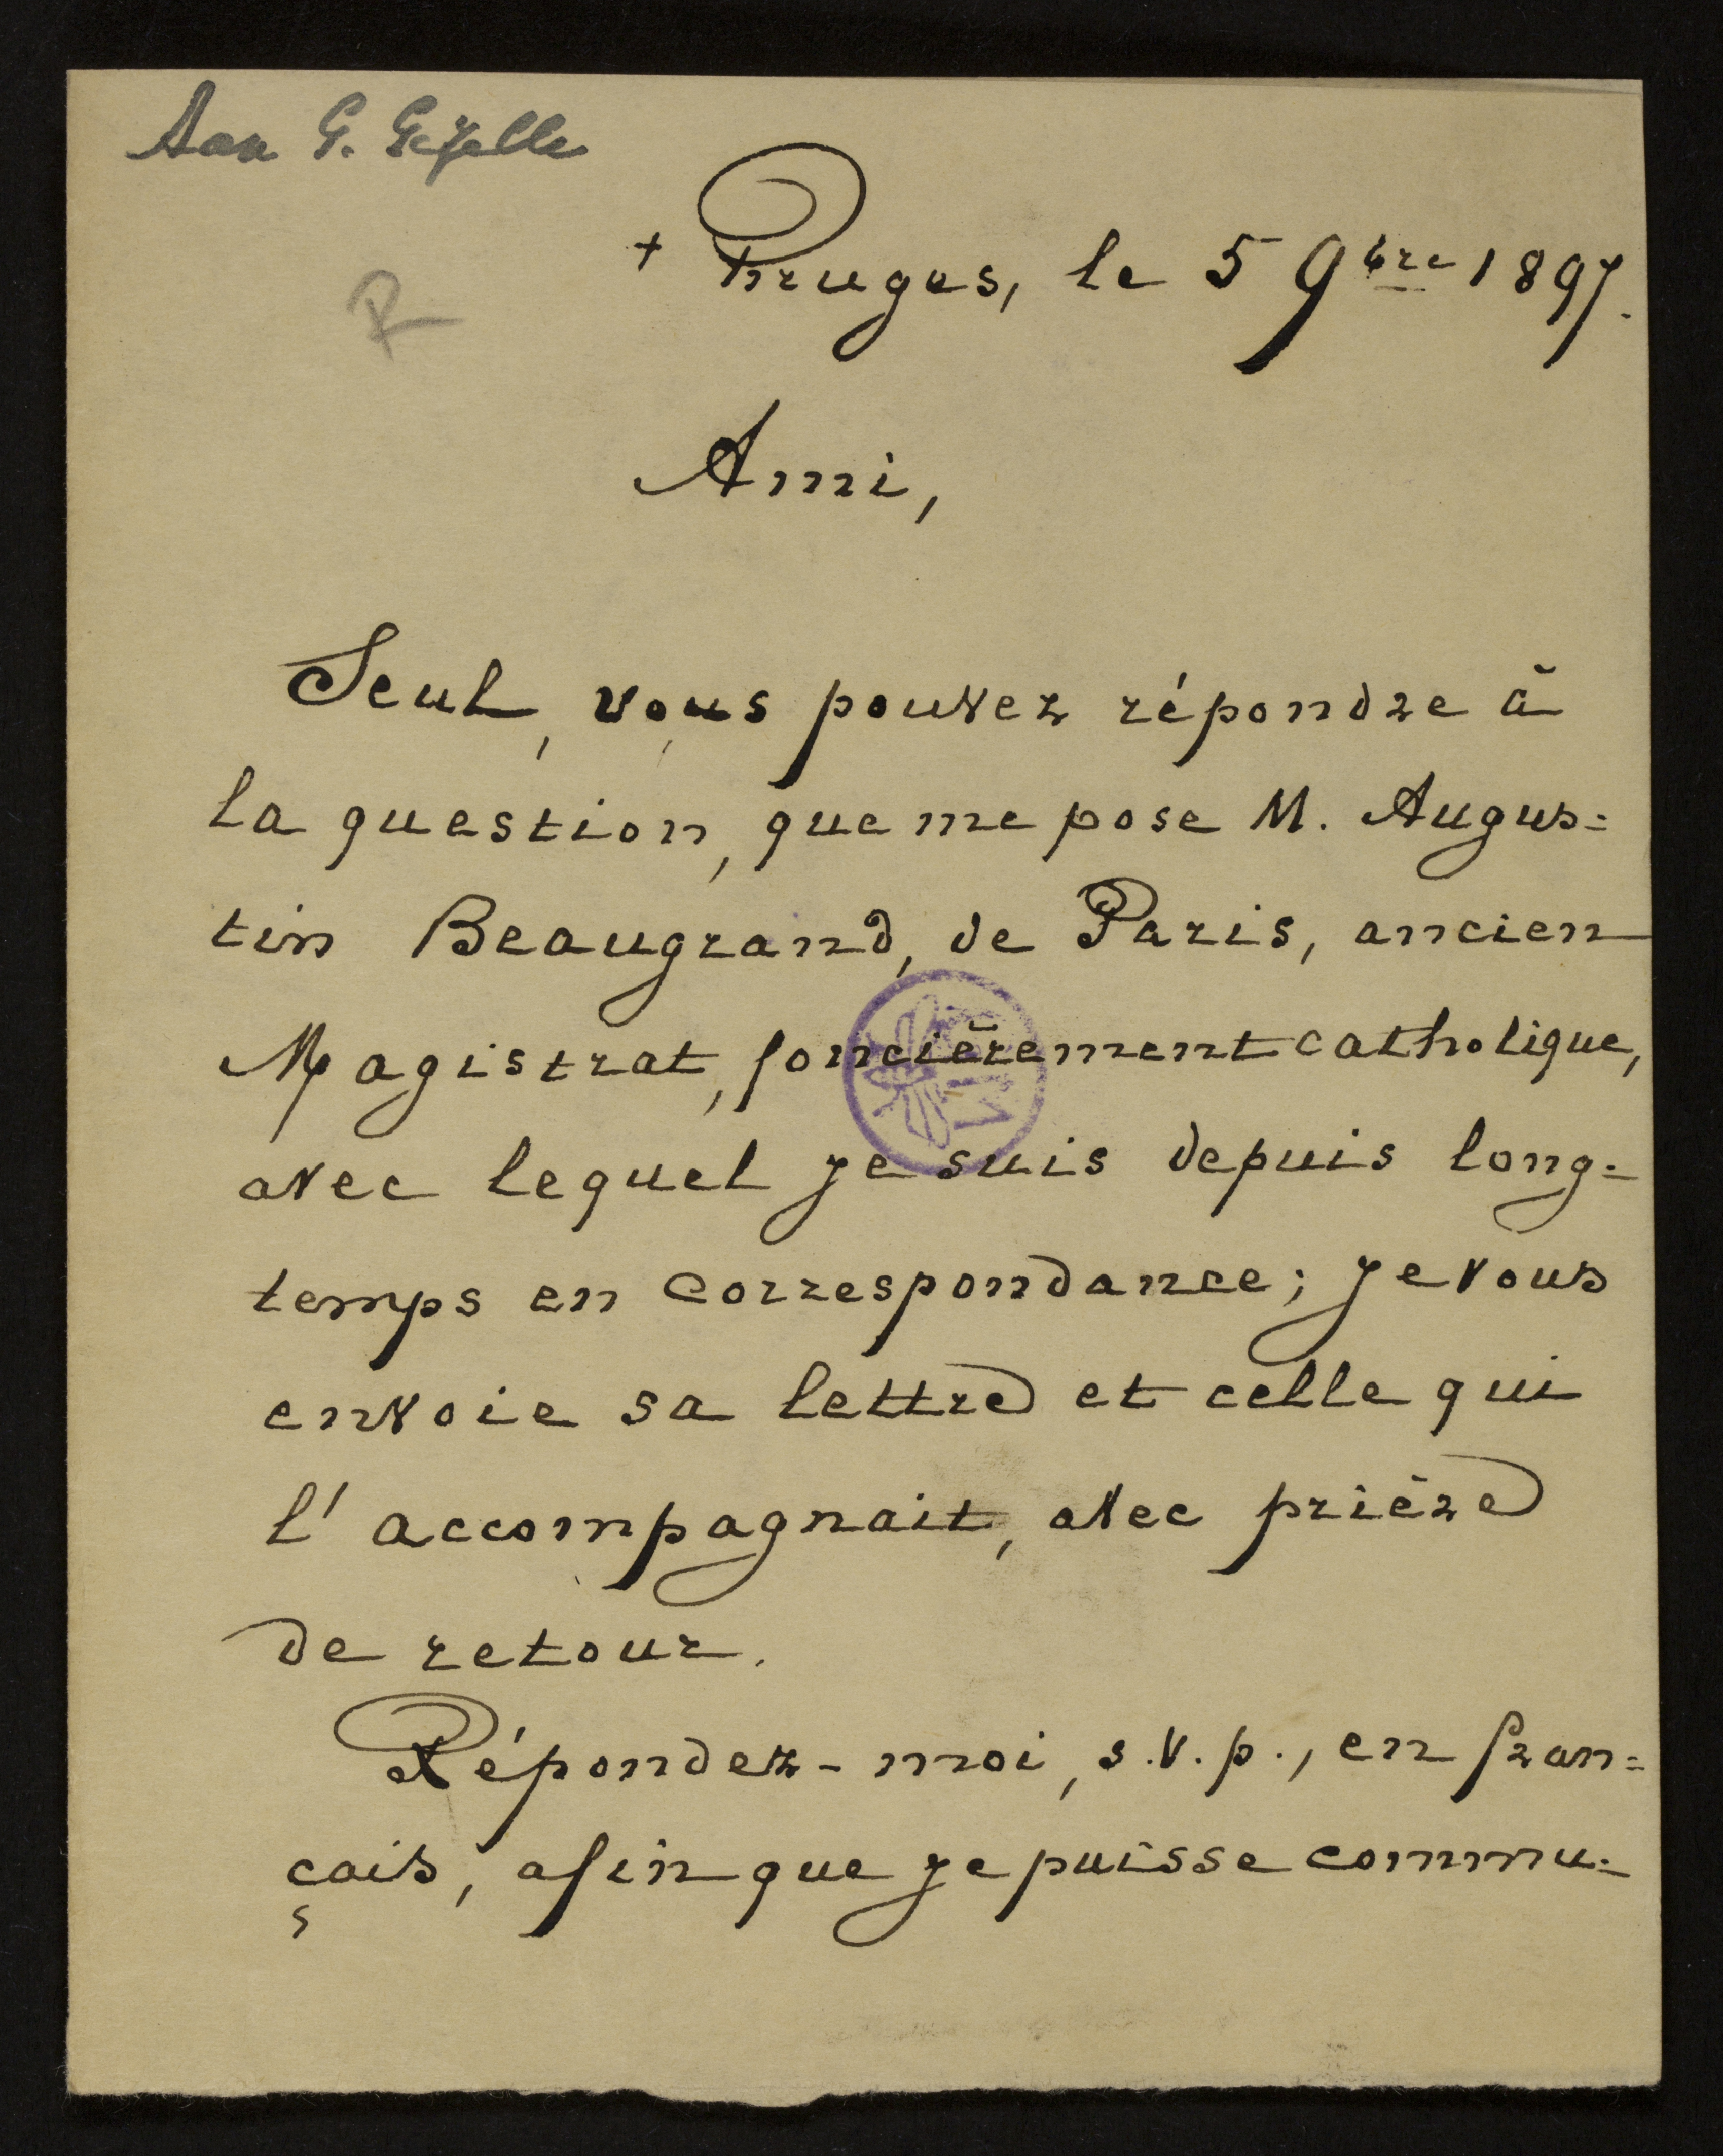 Aan G. Gezelle
+ Bruges, le 5 9bre 1897.
R
Ami,
Seul, vous pouvez répondre à
la question, que me pose M. Augus=
tin Beaugrand, de Paris, ancien
Magistrat, foncièrement catholique,
avec lequel je suis depuis long=
temps en correspondance; je vous
envoie sa lettre et celle qui
l'accompagnait, avec prière
de retour.
Répondez-moi, s.v.p., en fran=
çais, afin que je puisse commu=